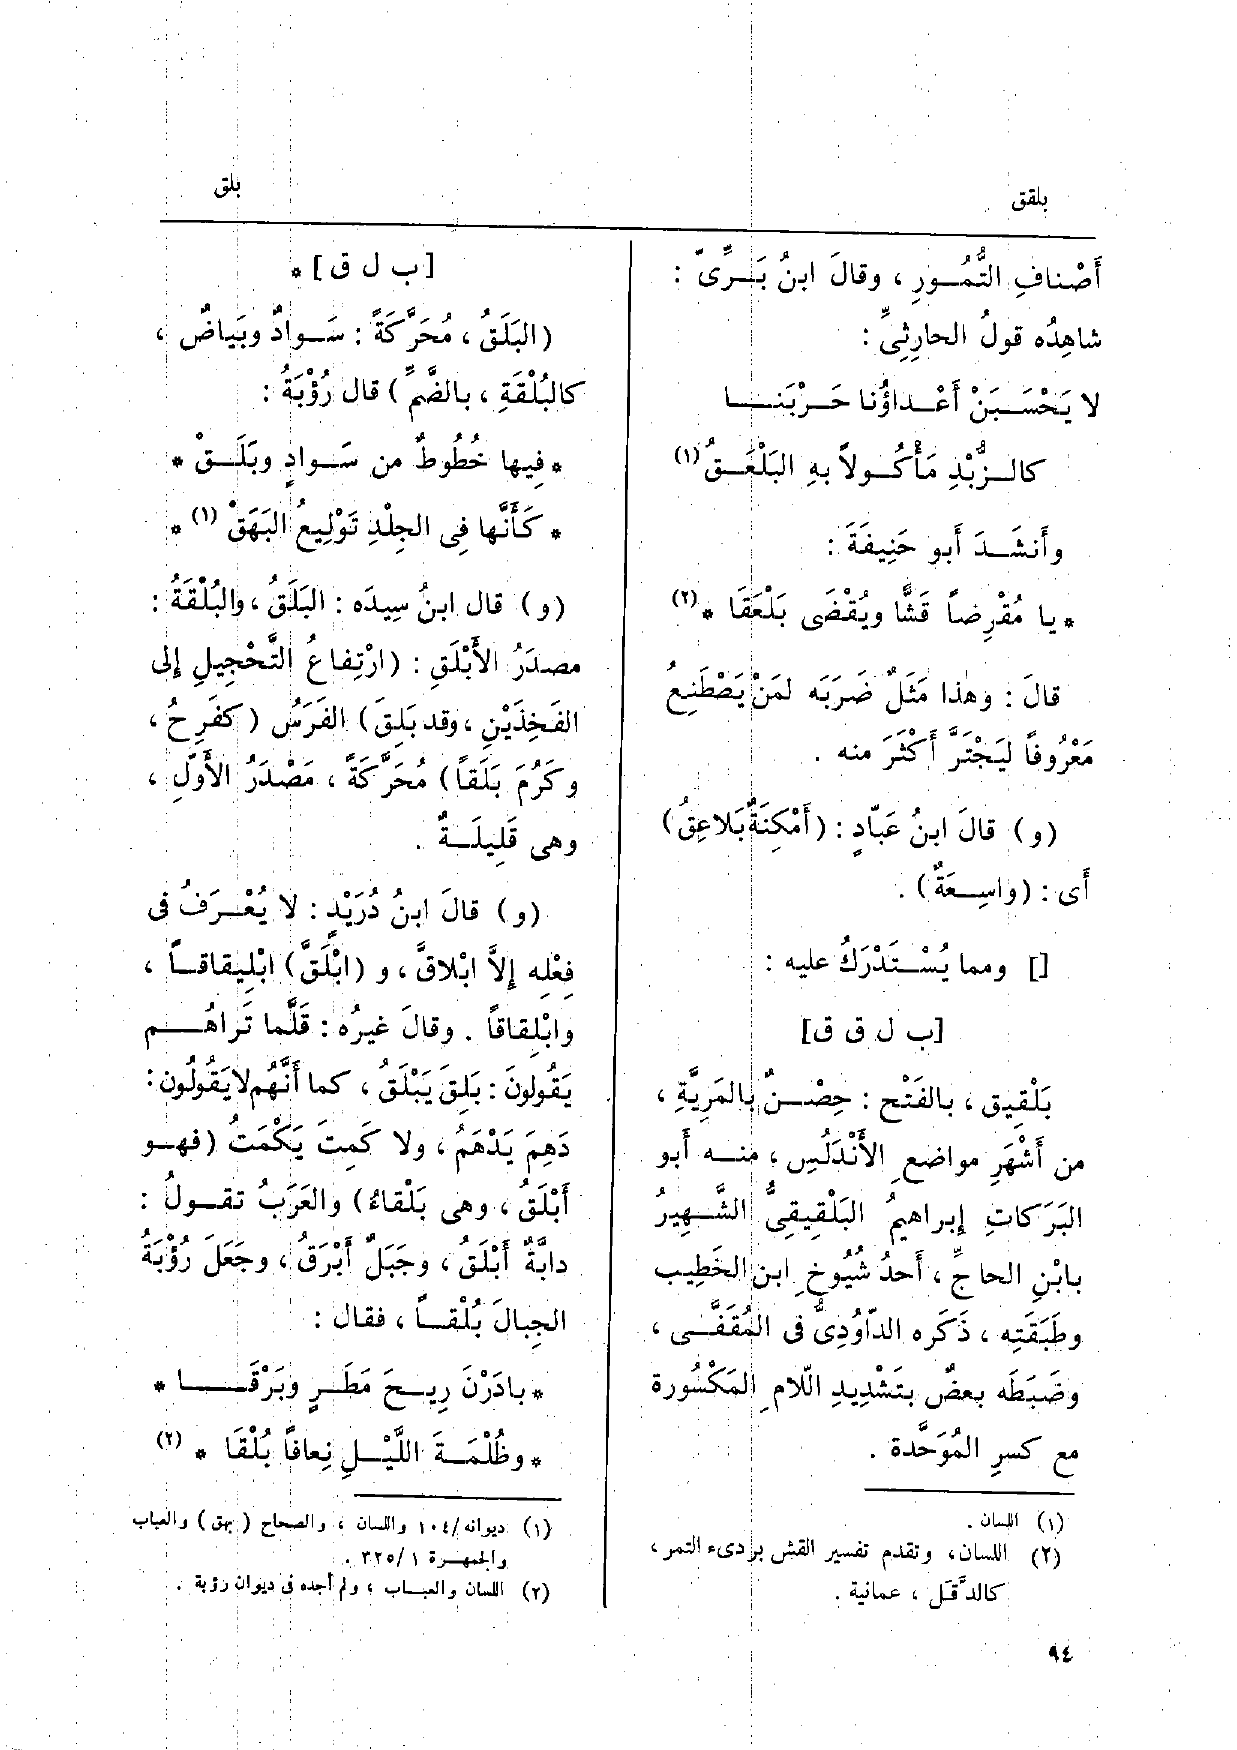 بلقق
بلق
أَصْنافِ التُّمُــورِ ، وقالَ ابنُ بَــرِّىّ :
شاهِدُه قولُ الحارِثِىِّ :
لا يَحْسَــبَنْ أَعْــداؤُنا حَــرْبَنــــا
كالــزُّبْدِ مَأْكُــولاً بهِ البَلْعَــقُ (١)
وأَنشَــدَ أَبو حَنِيفَةَ :
* يا مُقْرِضاً قَشًّا ويُقْضَى بَلْعَقَا * (٢)
قالَ : وهٰذا مَثَلٌ ضَرَبَه لمَنْ يَصْطَنِعُ
مَعْرُوفاً لِيَجْتَرَّ أَكْثَرَ منه .
(و) قالَ ابنُ عَبّادٍ : (أَمْكِنَةٌ بَلاعِقُ)
أَى : (واسِــعَةٌ) .
[] ومما يُسْــتَدْرَكُ عليه :
[ب ل ق ق]
بَلْقِيق ، بالفَتْح : حِصْــنٌ بالمَرِيَّةِ ،
من أَشْهَرِ مواضعِ الأَنْدَلُسِ ، منــه أَبو
البَرَكاتِ إِبراهيمُ البَلْقِيقِىُّ الشَّــهِيرُ
بابْنِ الحاجِّ ، أَحدُ شُيُوخِ ابنِ الخَطِيب
وطَبَقَتِه ، ذَكَره الدّاوُدِىُّ فى المُقَفَّــى ،
وضَبَطَه بعضٌ بتَشْدِيدِ اللّامِ المَكْسُورة
مع كسرِ المُوَحَّدة .
(١) اللسان .
(٢) اللسان، وتقدم تفسير القش بردىء التمر،
كالدَّقَل ، عمانية .
٩٤
[ب ل ق] *
(البَلَقُ ، مُحَرَّكَةً : سَــوادٌ وبَياضٌ ،
كالبُلْقَةِ ، بالضَّمِّ) قال رُؤْبَةُ :
* فِيها خُطُوطٌ من سَــوادٍ وبَلَــقْ *
* كَأَنَّها فِى الجِلْدِ تَوْلِيعُ البَهَقْ (١) *
(و) قال ابنُ سِيدَه : البَلَقُ ، والبُلْقَةُ :
مصدَرُ الأَبْلَقِ : (ارْتِفاعُ التَّحْجِيلِ إلى
الفَخِذَيْنِ ، وقد بَلِقَ) الفَرَسُ (كفَرِحَ ،
وكَرُمَ بَلَقاً) مُحَرَّكَةً ، مَصْدَرُ الأَوَّلِ ،
وهى قَلِيلَــةٌ .
(و) قالَ ابنُ دُرَيْدٍ : لا يُعْــرَفُ فى
فِعْلِه إِلاَّ ابْلاقَّ ، و (ابْلَقَّ) ابْلِيقاقــاً ،
وابْلِقاقاً . وقالَ غيرُه : قَلَّما تَراهُــــم
يَقُولونَ : بَلِقَ يَبْلَقُ ، كما أَنَّهُم لا يَقُولُون :
دَهِمَ يَدْهَمُ ، ولا كَمِتَ يَكْمَتُ (فهــو
أَبْلَقُ ، وهى بَلْقاءُ) والعَرَبُ تقــولُ :
دابَّةٌ أَبْلَقُ ، وجَبَلٌ أَبْرَقُ ، وجَعَلَ رُؤْبَةُ
الجِبالَ بُلْقــاً ، فقال :
* بادَرْنَ رِيــحَ مَطَــرٍ وبَرْقَــــا *
* وظُلْمَــةَ اللَّيْــلِ نِعافاً بُلْقَا * (٢)
(١) ديوانه/١٠٤ واللسان ، والصحاح (بهق) والعباب
والجمهــرة ٣٢٥/١ .
(٢) اللسان والعبــاب ، ولم أجده فى ديوان رؤبة .